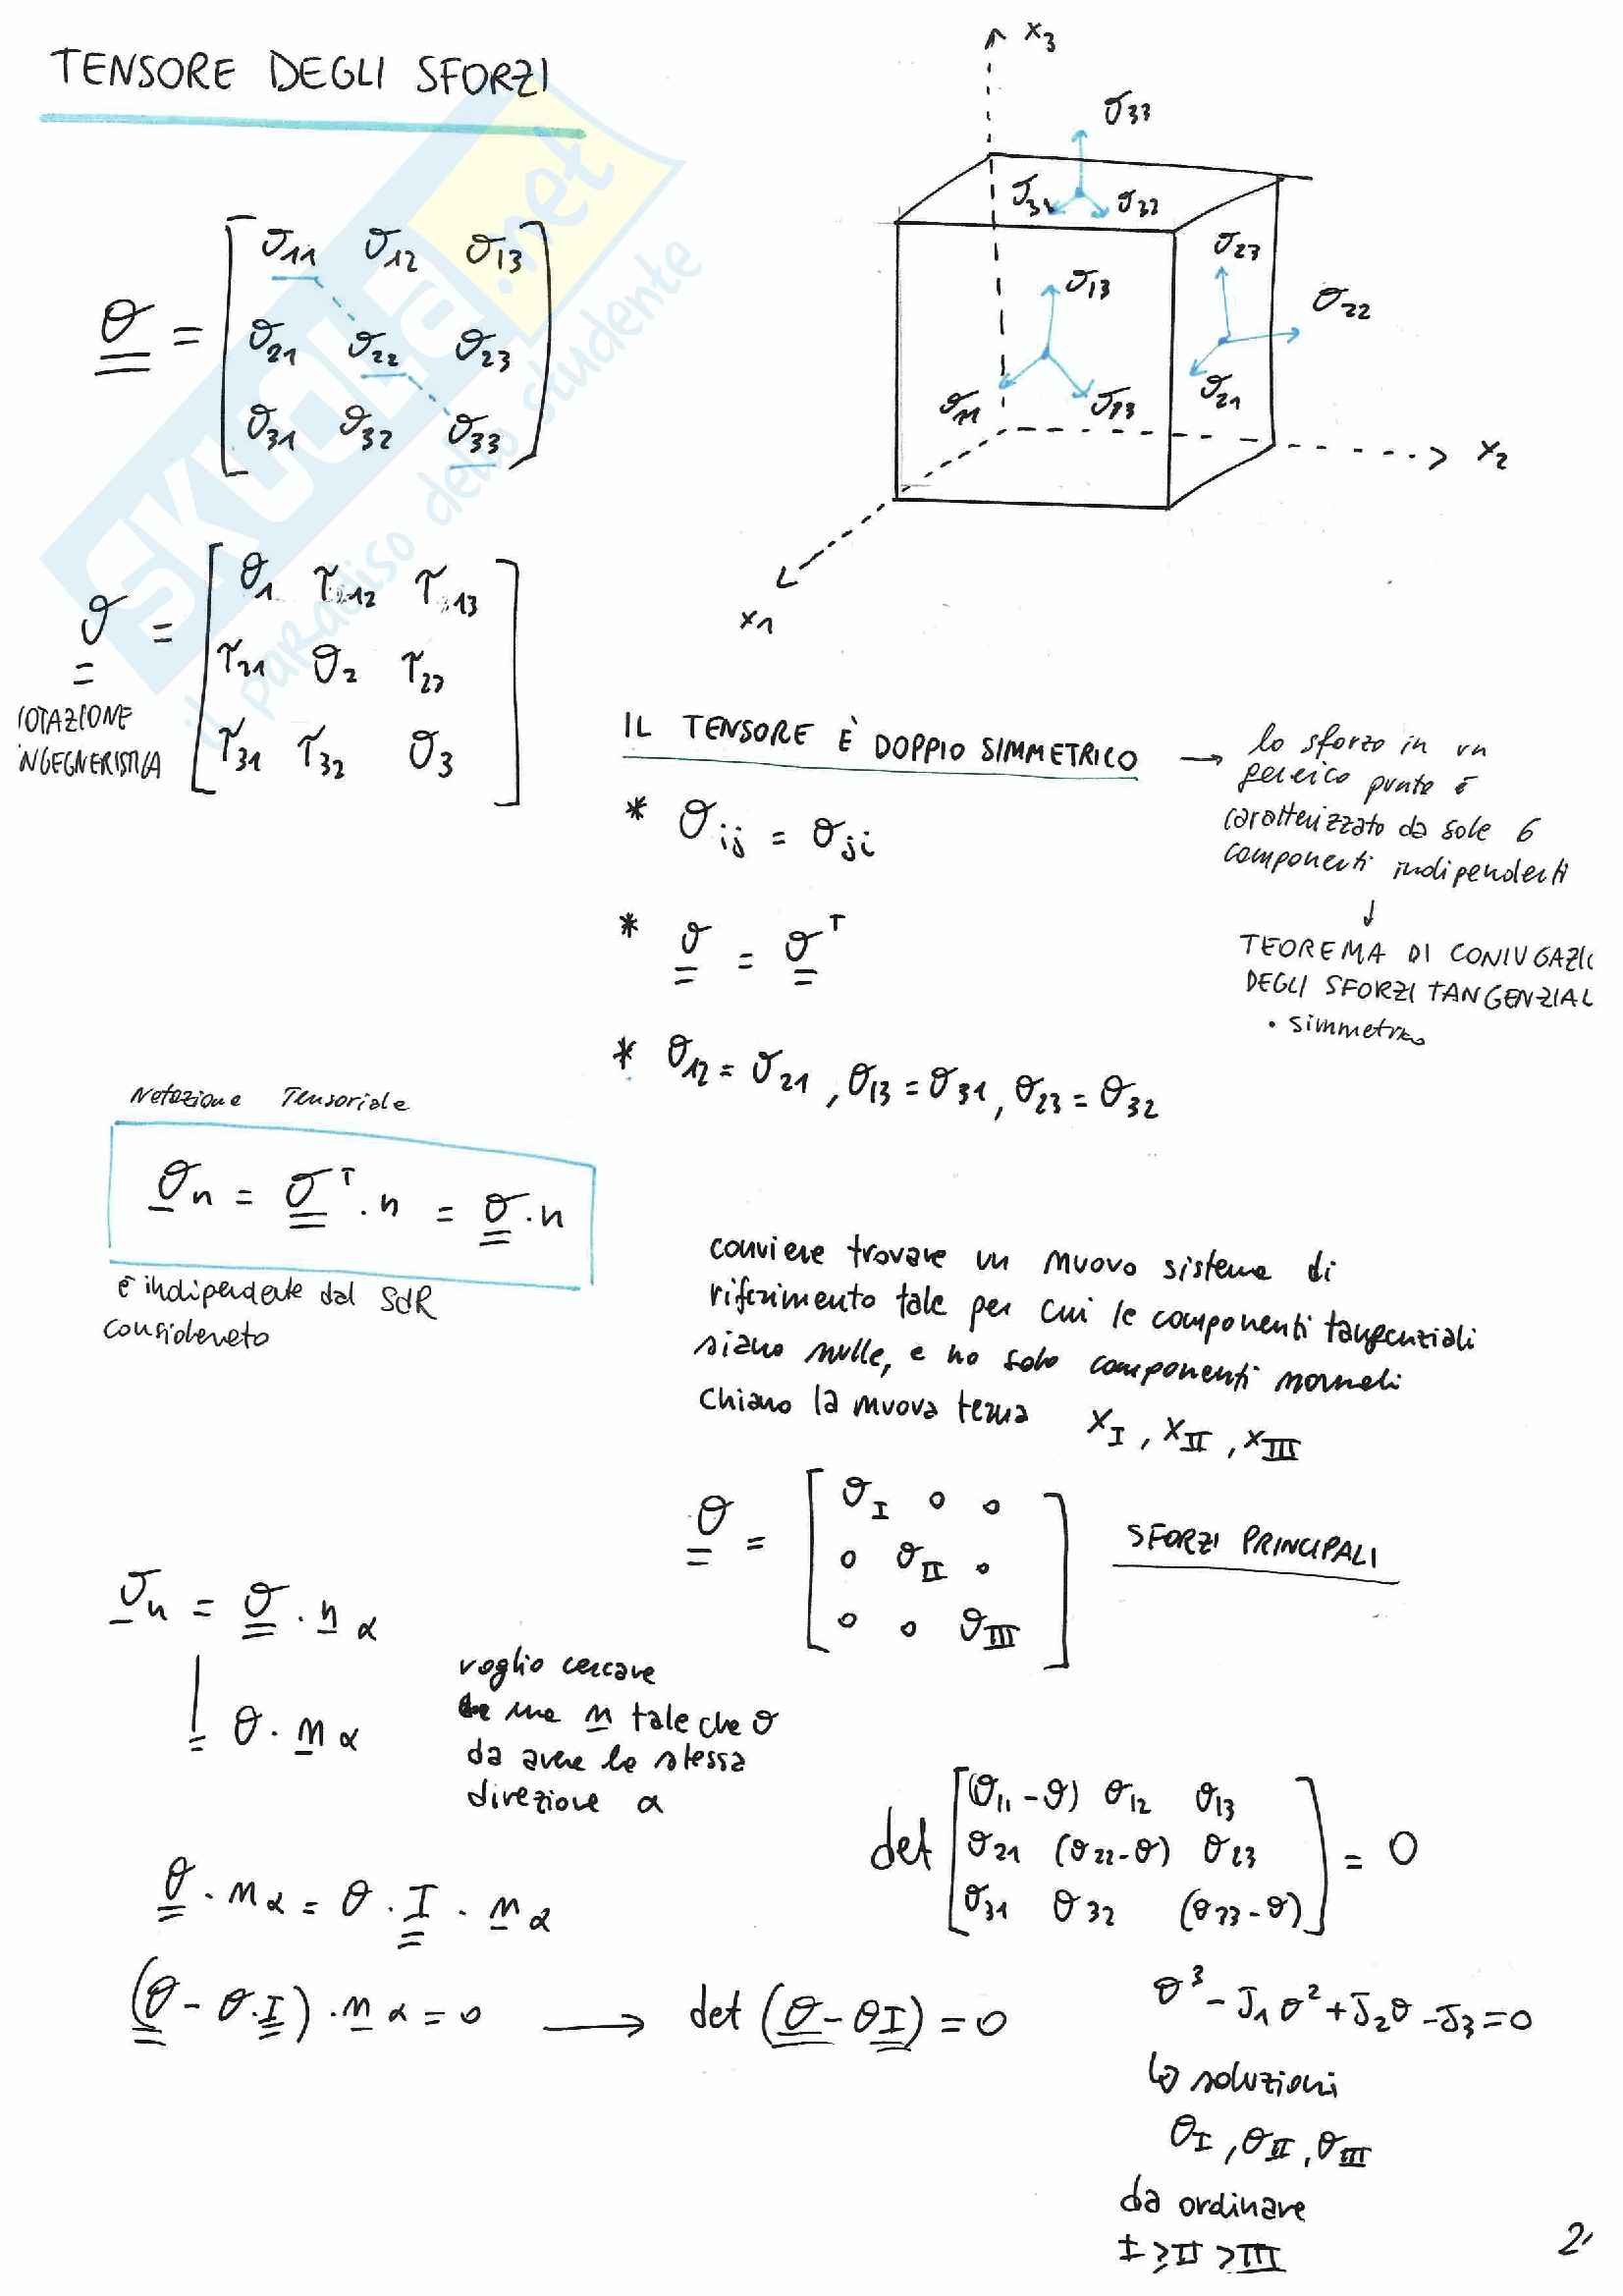 TENSORE DEGLI SFORZI
x3
σ33
σ31 σ32
σ13
σ11 σ13
σ23
σ22
σ21
x2
x1
σ = [ σ11 σ12 σ13
σ21 σ22 σ23
σ31 σ32 σ33 ]
σ = [ σ1 τ12 τ13
τ21 σ2 τ23
τ31 τ32 σ3 ]
IOTAZIONE
INGEGNERISTICA
IL TENSORE È DOPPIO SIMMETRICO →
lo sforzo in un
generico punto è
caratterizzato da sole 6
componenti indipendenti
↓
TEOREMA DI CONIUGAZI
DEGLI SFORZI TANGENZIAL
• simmetrico
* σij = σji
* σ = σ^T
* σ12 = σ21 , σ13 = σ31 , σ23 = σ32
Notazione Tensoriale
σn = σ^T · n = σ · n
è indipendente dal SdR
considerato
conviene trovare un nuovo sistema di
riferimento tale per cui le componenti tangenziali
siano nulle, e ho solo componenti normali
chiamo la nuova terna xI , xII , xIII
σ = [ σI 0 0
0 σII 0
0 0 σIII ]
SFORZI PRINCIPALI
σn = σ · nα
= σ · nα
voglio cercare
una n tale che σ
da avere la stessa
direzione α
σ · nα = σ · I · nα
(σ - σ·I) · nα = 0 → det (σ - σI) = 0
det [ (σ11 - σ) σ12 σ13
σ21 (σ22 - σ) σ23
σ31 σ32 (σ33 - σ) ] = 0
σ³ - J1σ² + J2σ - J3 = 0
↳ soluzioni
σI , σII , σIII
da ordinare
I ≥ II > III
2
SKUOLA.net
il paradiso dello studente